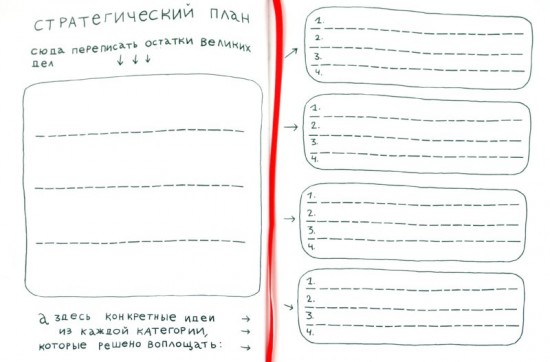 стратегический план
сюда переписать остатки великих
дел ↓ ↓ ↓
а здесь конкретные идеи →
из каждой категории, →
которые решено воплощать: →
→ 1.
2.
3.
4.
→ 1.
2.
3.
4.
→ 1.
2.
3.
4.
→ 1.
2.
3.
4.